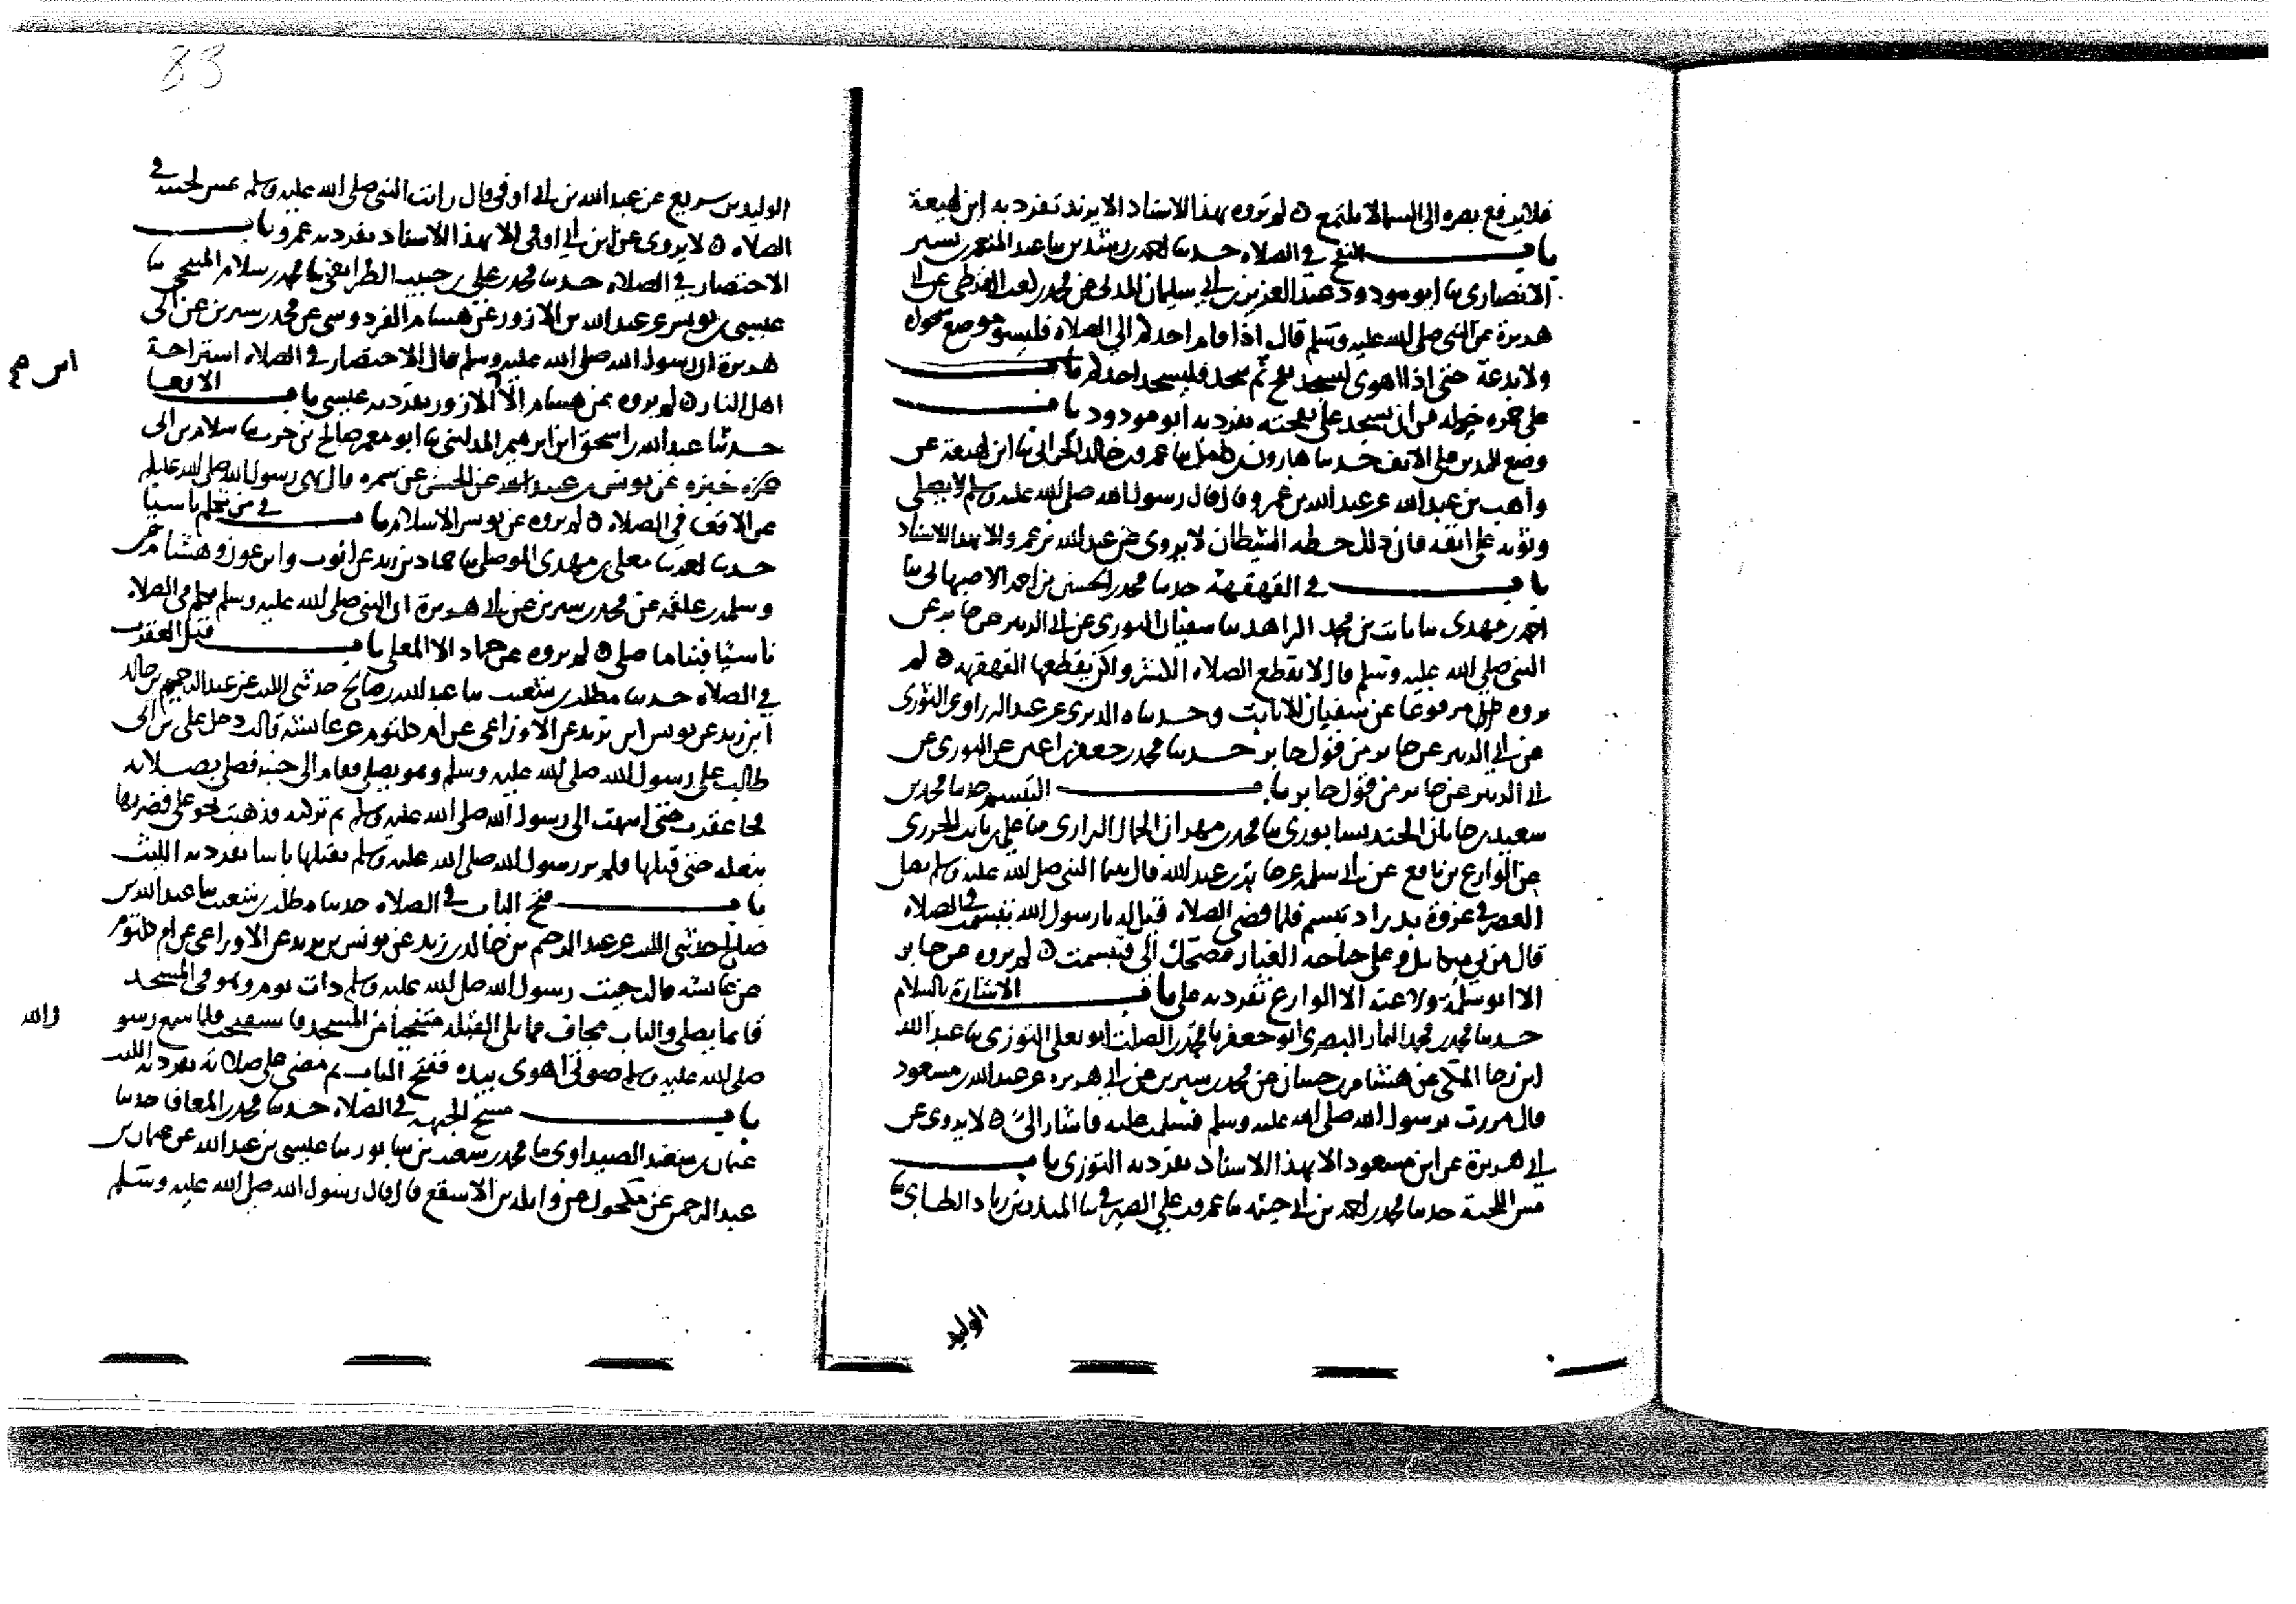 فلا يرفع بصره الى السما لا يلتمع ه لم يروه بهذا الاسناد الا يزيد تفرد به ابن لهيعة
باب النفخ في الصلاه حدثنا احمد بن رشدين ثنا عبد المنعم بن بشير
الانصارى ثنا ابو مودود عبد العزيز بن ابي سليمان المدني عن محمد بن كعب القرظى عن ابي
هريرة عن النبي صلى الله عليه وسلم قال اذا قام احدكم الى الصلاه فليسو موضع سجوده
ولا يدعه حتى اذا اهوى ليسجد نفخ ثم سجد فليسجد احدكم
على جمره خير له من ان يسجد على نفخته تفرد به ابو مودود باب
وضع اليدين على الانف حدثنا هارون بن كامل ثنا عمرو بن خالد الحرانى ثنا ابن لهيعة عن
واهب بن عبد الله عن عبد الله بن عمرو قال قال رسول الله صلى الله عليه وسلم لا يصلى
وثوبه على انفه فان ذلك خطم الشيطان لا يروى عن عبد الله بن عمرو الا بهذا الاسناد
باب في القهقهة حدثنا محمد بن الحسين بن احمد الاصبهانى ثنا
احمد بن مهدى ثنا ثابت بن محمد الزاهد ثنا سفيان الثورى عن ابي الزبير عن جابر عن
النبي صلى الله عليه وسلم قال لا يقطع الصلاه الكشر ولكن يقطعها القهقهه ه لم
يروه مرفوعا عن سفيان الا ثابت وحدثناه الدبرى عن عبد الرزاق عن الثورى
عن ابي الزبير عن جابر من قول جابر حدثنا محمد بن جعفر بن اعين عن الثورى عن
ابي الزبير عن جابر من قول جابر باب التبسم حدثنا محمد بن
سعيد بن جابان الجنديسابورى ثنا محمد بن مهران الجمال الرازى ثنا على بن ثابت الجزرى
عن الوازع بن نافع عن ابي سلمه عن جابر بن عبد الله قال بينما النبي صلى الله عليه وسلم يصلى
العصر في غزوة بدر اذ تبسم فلما قضى الصلاه قيل له يا رسول الله تبسمت في الصلاه
قال مر بي ميكائيل وعلى جناحه الغبار فضحك الى فتبسمت ه لم يروه عن جابر
الا ابو سلمة ولا عنه الا الوازع تفرد به على باب الاشارة بالسلام
حدثنا محمد بن محمد التمار البصرى ابو جعفر ثنا محمد بن الصلت ابو يعلى التوزى ثنا عبد الله
ابن رجا المكى عن هشام بن حسان عن محمد بن سيرين عن ابي هريره عن عبد الله بن مسعود
قال مررت برسول الله صلى الله عليه وسلم فسلمت عليه فاشار الىّ ه لا يروى عن
ابي هريرة عن ابن مسعود الا بهذا الاسناد تفرد به التوزى باب
مس اللحية حدثنا محمد بن احمد بن ابي خيثمه ثنا عمرو بن على الصيرفي ثنا المنذر بن زياد الطائى ثنا
الوليد
83
الوليد بن سريع عن عبد الله بن ابي اوفى قال رايت النبي صلى الله عليه وسلم يمس لحيته في
الصلاه ه لا يروى عن ابن ابي اوفى الا بهذا الاسناد تفرد به عمرو باب
الاختصار في الصلاه حدثنا محمد بن على بن حبيب الطرايفى ثنا محمد بن سلام المنبجى ثنا
عيسى بن يونس عن عبد الله بن الازور عن هشام القردوسى عن محمد بن سيرين عن ابى
هريرة ان رسول الله صلى الله عليه وسلم قال الاختصار في الصلاه استراحة
اهل النار ه لم يروه عن هشام الا الازور تفرد به عيسى باب الاقعا
حدثنا عبد الله بن اسحق ابن ابرهيم المدايني ثنا ابو معمر صالح بن حرب ثنا سلام بن ابى
خبزه عن يونس بن عبيد عن الحسن عن سمره قال نهى رسول الله صلى الله عليه وسلم
عن الاقعا في الصلاه ه لم يروه عن يونس الا سلام باب في من تكلم ناسيا
حدثنا احمد ثنا معلى بن مهدى الموصلى ثنا حماد بن زيد عن ايوب وابن عون وهشام
وسلمه بن علقمه عن محمد بن سيرين عن ابي هريرة ان النبي صلى الله عليه وسلم تكلم في الصلاه
ناسيا فبنا ما صلى ه لم يروه عن حماد الا المعلى باب قتل العقرب
في الصلاه حدثنا مطلب بن شعيب ثنا عبد الله بن صالح حدثنى الليث عن عبد الرحيم بن خالد
ابن زيد عن يونس ابن يزيد عن الاوزاعى عن ام كلثوم عن عائشه قالت دخل على بن ابى
طالب على رسول الله صلى الله عليه وسلم وهو يصلى فقام الى جنبه فصلى بصلاته
فجا عقرب حتى انتهت الى رسول الله صلى الله عليه وسلم ثم تركته وذهبت نحو على فضربها
بنعله حتى قتلها فلم ير رسول الله صلى الله عليه وسلم بقتلها باسا تفرد به الليث
باب فتح الباب في الصلاه حدثنا مطلب بن شعيب ثنا عبد الله بن
صالح حدثنى الليث عن عبد الرحيم بن خالد بن زيد عن يونس بن يزيد عن الاوزاعى عن ام كلثوم
عن عائشه قالت جيت رسول الله صلى الله عليه وسلم ذات يوم وهو في المسجد
قائما يصلى والباب مجاف مما يلى القبله فلما سمع رسو
صلى الله عليه وسلم صوتى اهوى بيده ففتح الباب ثم مضى على صلاته تفرد به الليث
باب مسح الجبهه في الصلاه حدثنا محمد بن المعافا حدثنا
محمد بن سعيد بن سابور ثنا عيسى بن عبد الله عن عثمان بن
عبد الرحمن عن مكحول عن واثله بن الاسقع قال قال رسول الله صلى الله عليه وسلم